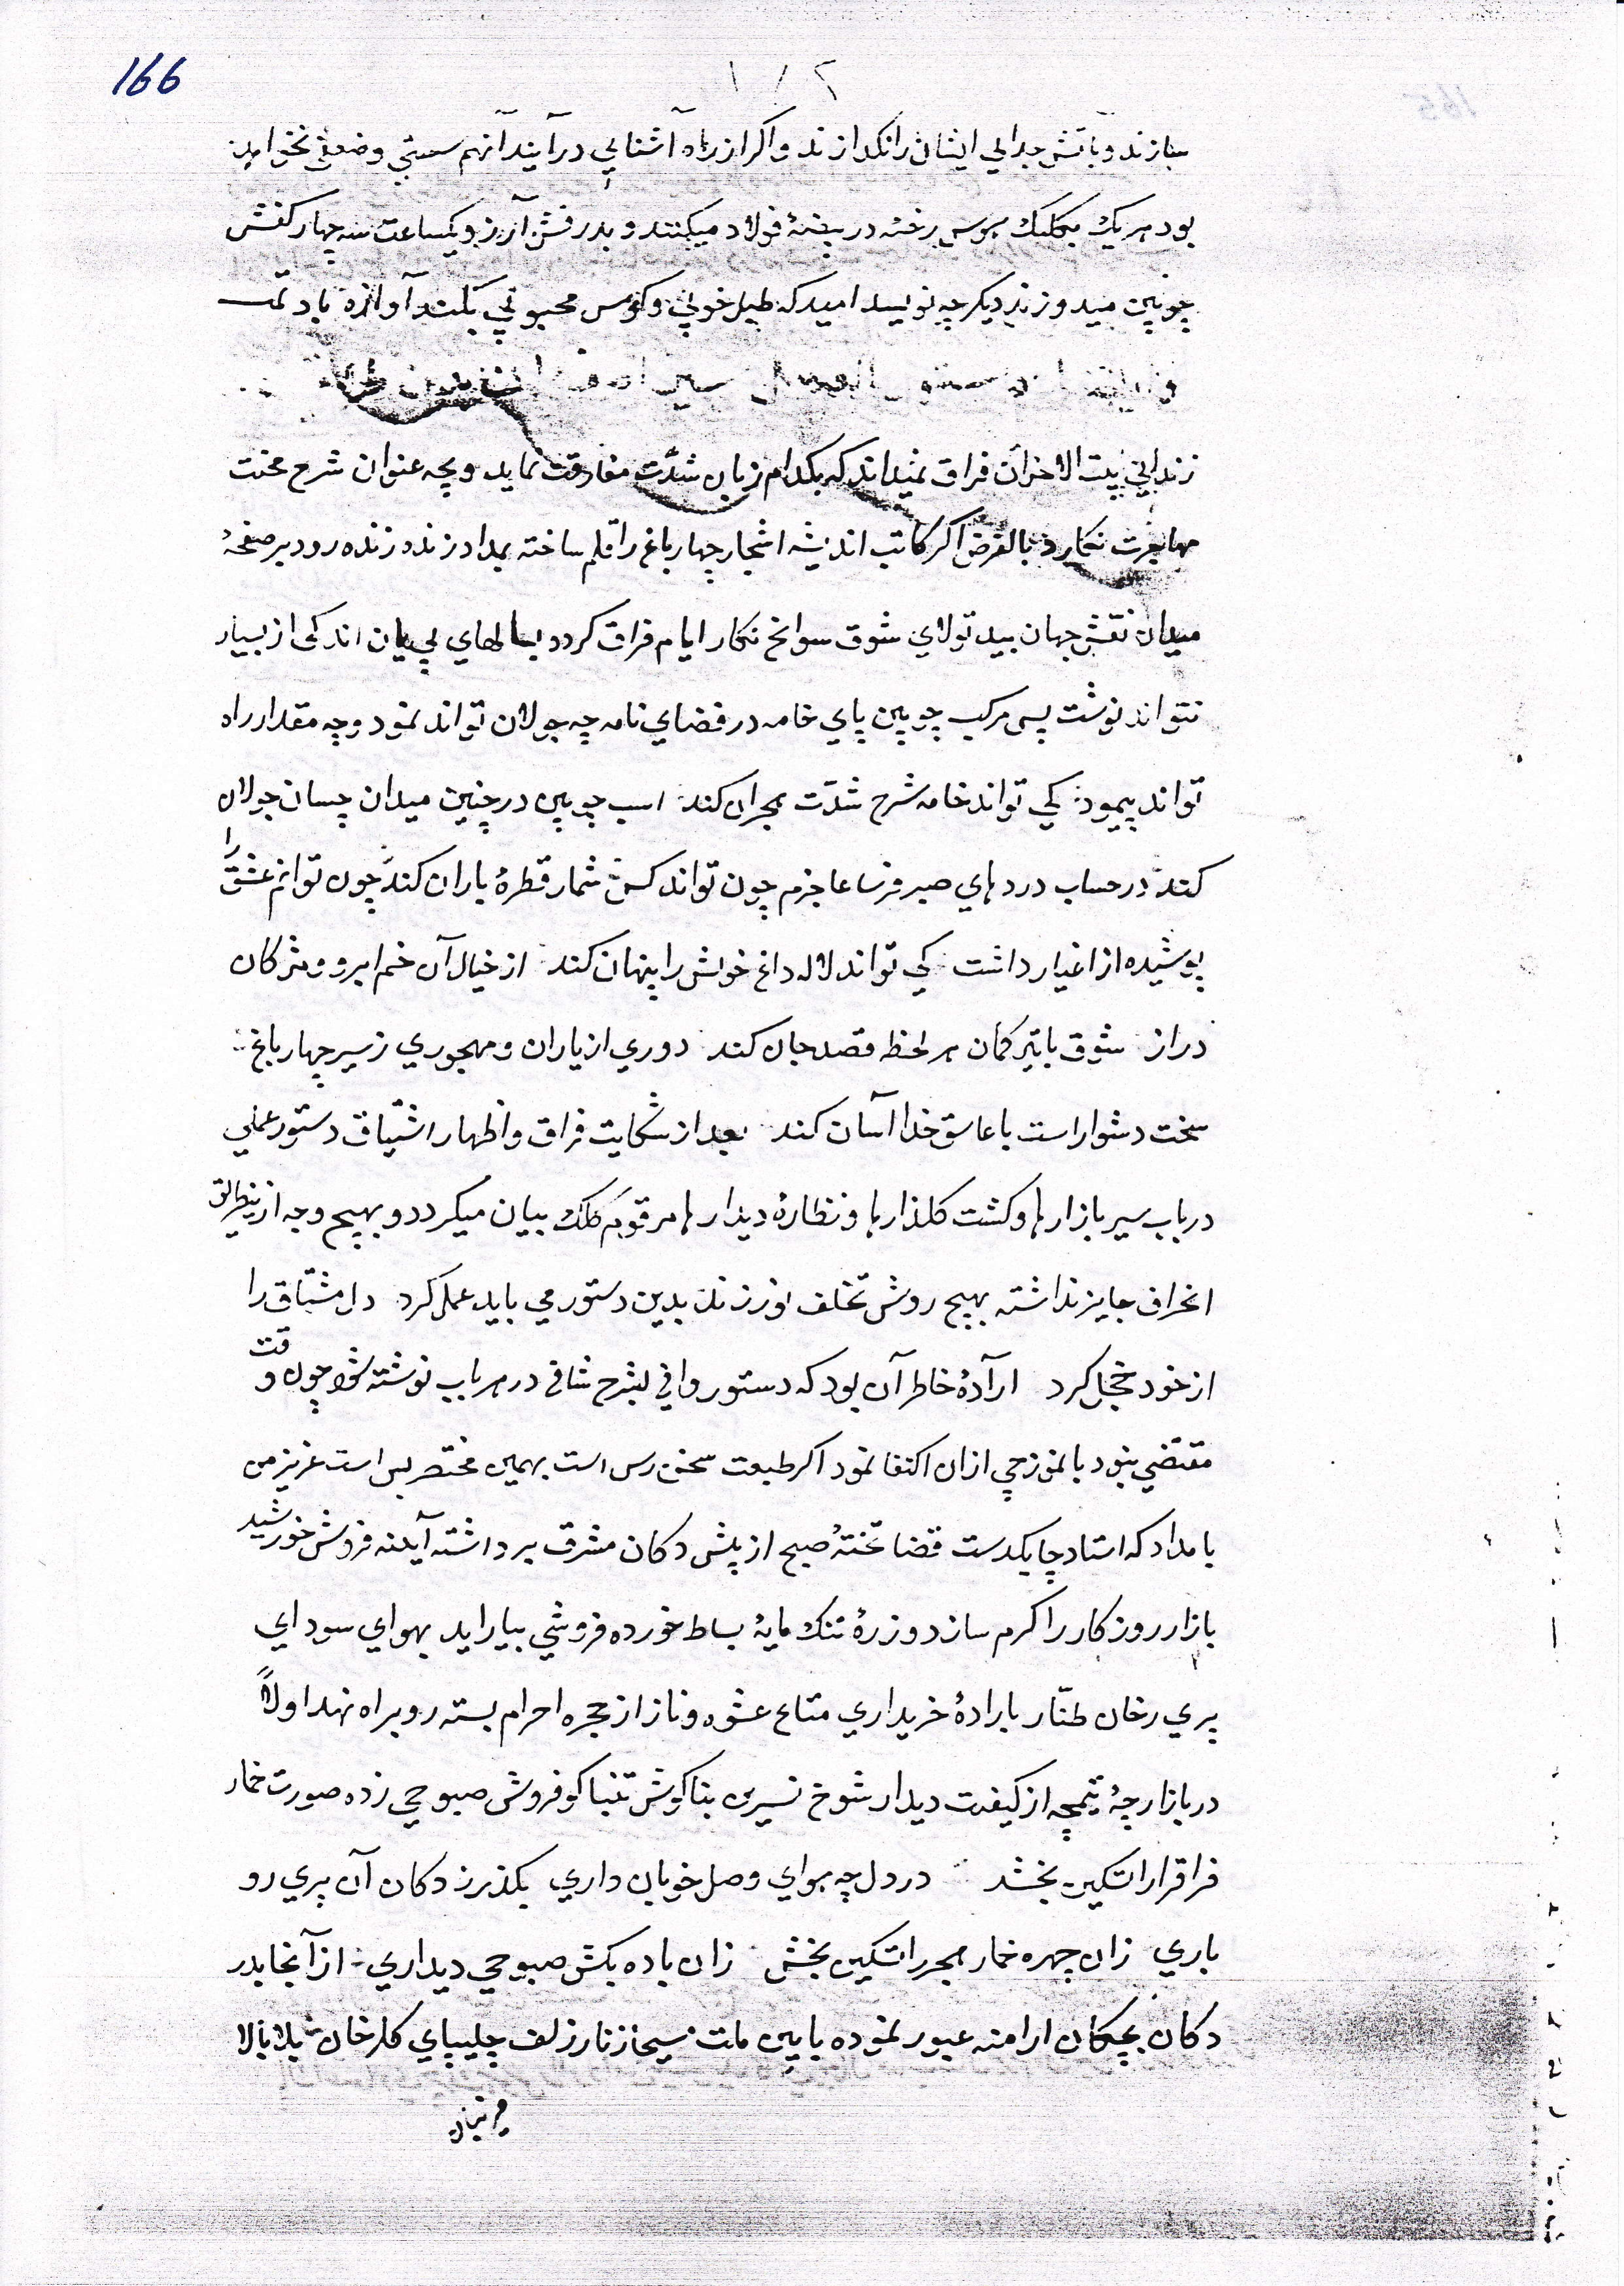 166
۱۸۲
سازند و بآتش جدائي ايشان را نگدازند و اكر از راه آشنايي درآيند آنهم سستي و ضعفي نخواهد
بود هر يك بيك هوس رخنه در بيضۀ فولاد ميكنند و بدرفش آرزو يكساعت سه چهار كفش
چوپين ميدوزند ديكر چه نويسد اميد كه طبل خوبي و كوس محبوبي بلند آوازه باد تمت
زنداني بيت الاحزان فراق نميداند كه بكدام زبان شدّت مفارقت نمايد و بچه عنوان شرح محنت
مهاجرت نكارد بالفرض اكر كاتب انديشه اشجار چهارباغ را قلم ساخته بمداد زنده زنده رود بر صفحۀ
ميدان نقش جهان بيد تولاي شوق سوانح نكار ايام فراق كردد بسالهاي بي پايان اندكى از بسيار
نتواند نوشت پس مركب چوپين پاي خامه در فضاي نامه چه جولان تواند نمود و چه مقدار راه
تواند پيمود كي تواند خامه شرح شدّت هجران كند اسب چوپين در چنين ميدان چسان جولان
كند در حساب دردهاي صبر فرسا عاجزم چون تواند كس شمار قطرۀ باران كند چون توانم عشق را
پوشيده از اغيار داشت كي تواند لاله داغ خويش را پنهان كند از خيال آن خم ابرو و مژكان
دراز شوق با تير و كمان هر لحظه قصد جان كند دوري از ياران و مهجوري ز سير چهار باغ
سخت دشوار است با عاشق خدا آسان كند بعد از شكايت فراق و اظهار اشتياق دستور عملي
در باب سير بازارها و كشت كلذارها و نظارۀ ديدارها مرقوم كلك بيان ميكردد و بهيچ وجه ازينطريق
انحراف جايز نداشته بهيچ روش تخلف نورزند بدين دستور مي بايد عمل كرد دل مشتاق را
از خود خجل كرد ارادۀ خاطر آن بود كه دستور وافي بشرح شافي در هر باب نوشته شود چون وقت
مقتضي نبود بانموزجي ازان اكتفا نمود اكر طبيعت سخن رس است بهمين مختصر بس است عزيز من
بامداد كه استاد چابكدست قضا تختۀ صبح از پيش دكان مشرق برداشته آينه فروش خورشيد
بازار روزكار را كرم سازد و زرۀ تنك مايۀ بساط خورده فروشي بيارايد بهواي سوداي
پري رخان طنّار بارادۀ خريداري متاع عشوه و ناز از حجره احرام بسته رو براه نهد اولاً
در بازارچۀ تيمچه از كيفيت ديدار شوخ نسرين بناكوش تنباكو فروش صبوحي زده صورت خمار
فراق را تسكين بخشد در دل چه هواي وصل خوبان داري بكذر ز دكان آن پري رو
باري زان چهره خمار هجر را تسكين بخش زان باده بكش صبوحي ديداري از آنجا بدر
دكان بچكان ارامنه عبور نموده بايين ملت مسيحا ز نار زلف چليپاي كلرخان بلا بالا